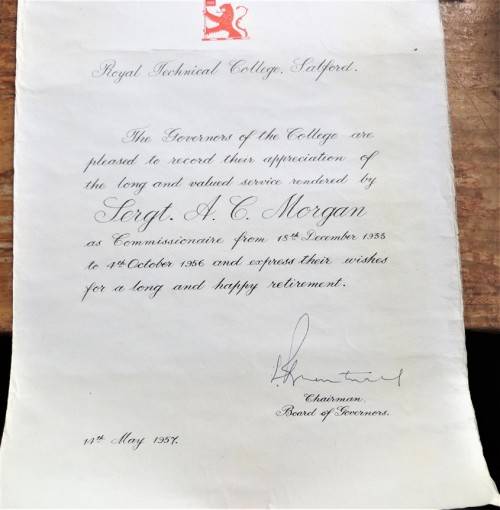 Royal Technical College, Salford.
The Governors of the College are
pleased to record their appreciation of
the long and valued service rendered by
Sergt. A. C. Morgan
as Commissionaire from 18th December 1933
to 4th October 1956 and express their wishes
for a long and happy retirement.
Chairman.
Board of Governors.
14th May 1957.